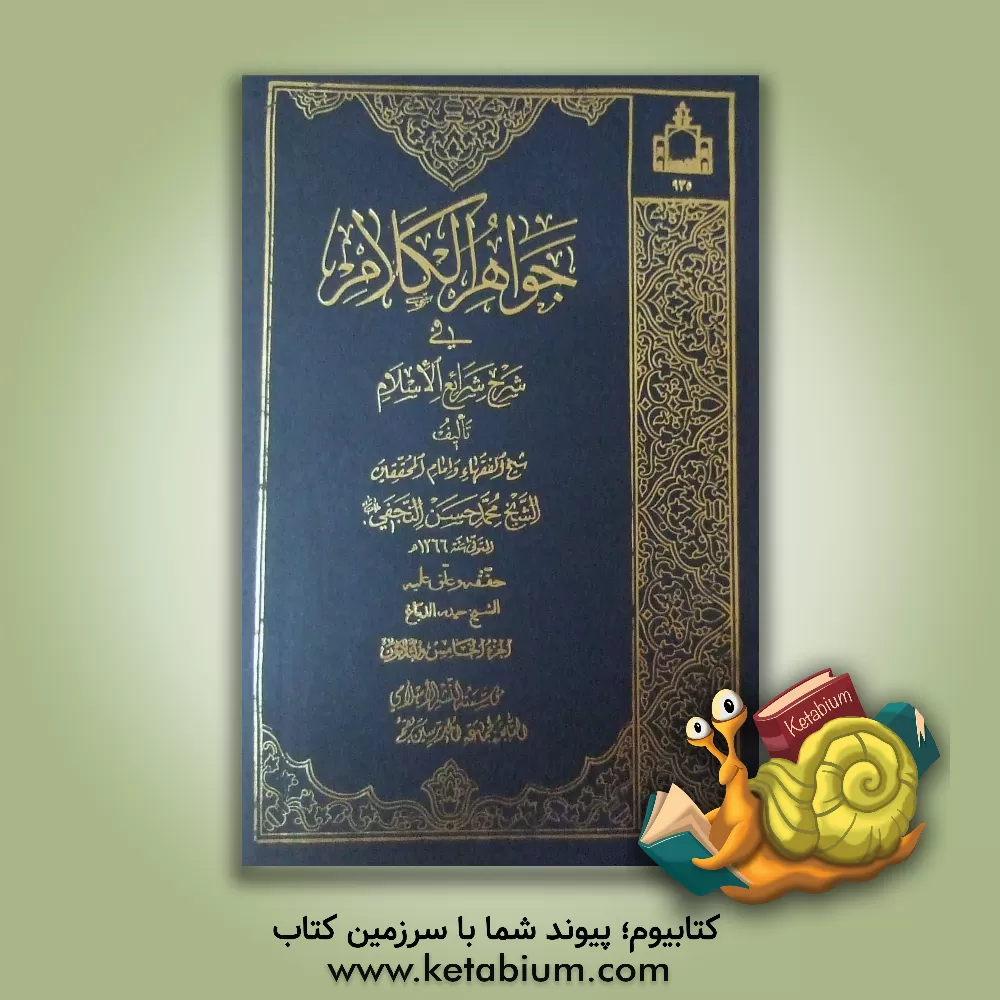 ٩٣٥
جَوَاهِرُ الْكَلَامِ
فِي
شَرْحِ شَرَائِعِ الْإِسْلَامِ
تَأْلِيفُ
شيخ الفقهاء وإمام المحققين
الشَّيْخ مُحَمَّد حَسَن النَّجَفِي
المتوفى سنة ١٢٦٦ه
حققه وعلق عليه
الشيخ حيدر الدباغ
الجزء الخامس والثلاثون
مؤسسة النشر الإسلامي
التابعة لجماعة المدرسين بقم
Ketabium
کتابیوم؛ پیوند شما با سرزمین کتاب
www.ketabium.com